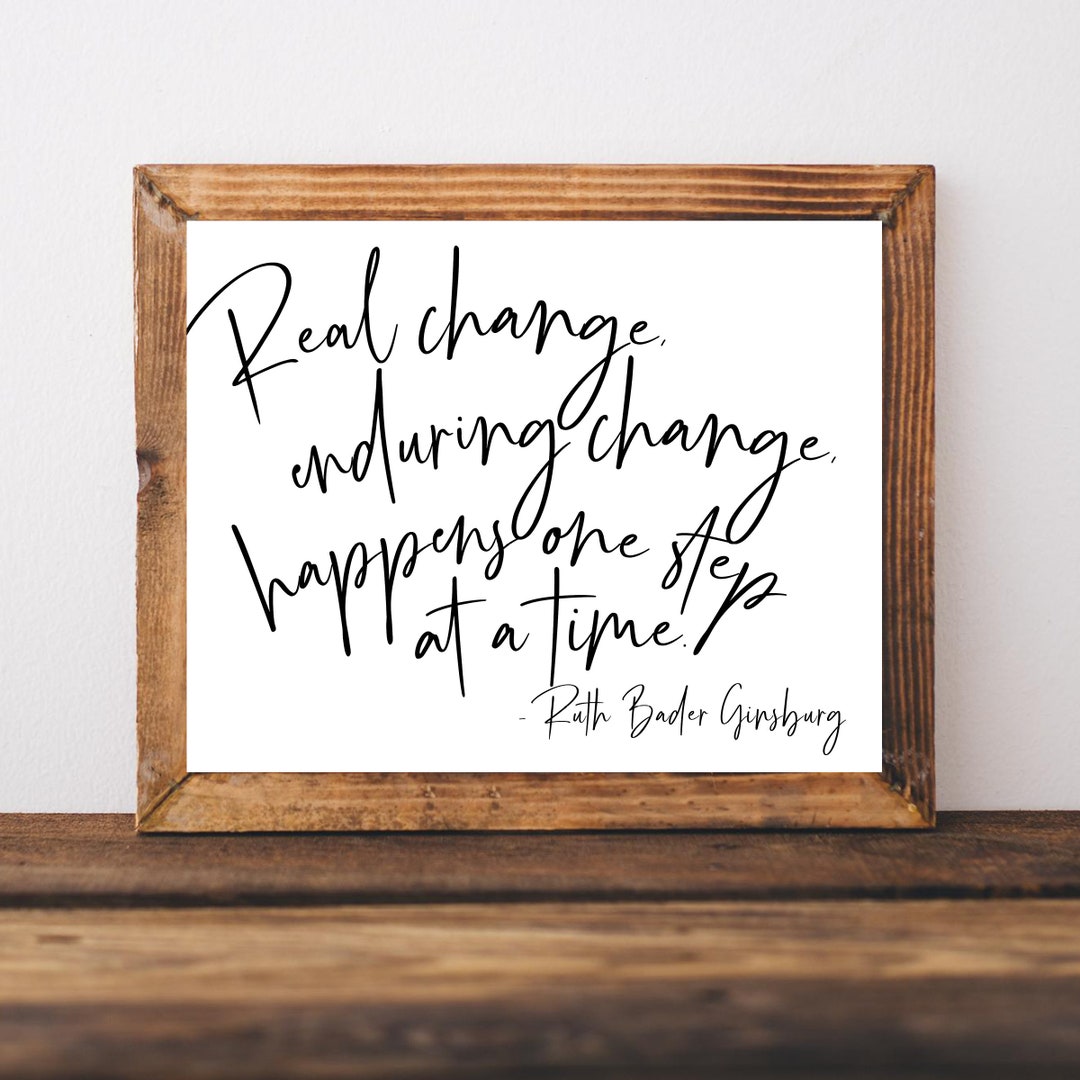 Real change,
enduring change,
happens one step
at a time.
- Ruth Bader Ginsburg